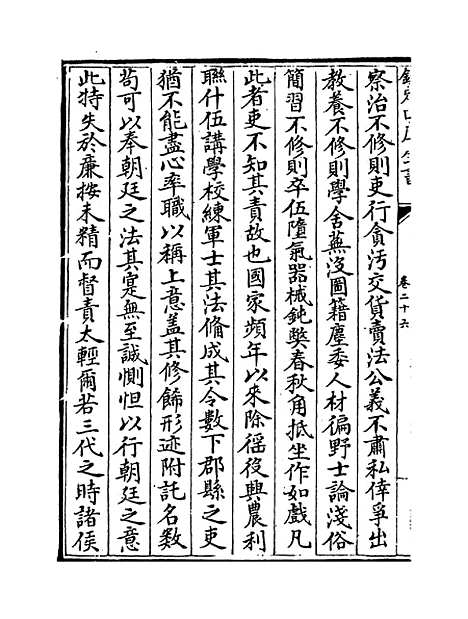 欽定四庫全書
卷二十六
察治不修則吏行貪汚交貨賣法公義不肅私倖爭出
教養不修則學舍蕪沒圖籍塵委人材徧野士論淺俗
簡習不修則卒伍墮氣器械鈍弊春秋角抵坐作如戲凡
此者吏不知其責故也國家頻年以來除徭役興農利
聯什伍講學校練軍士其法偹成其令數下郡縣之吏
猶不能盡心率職以稱上意盖其修飾形迹附託名數
茍可以奉朝廷之法其寔無至誠惻怛以行朝廷之意
此特失於亷按未精而督責太輕爾若三代之時諸侯